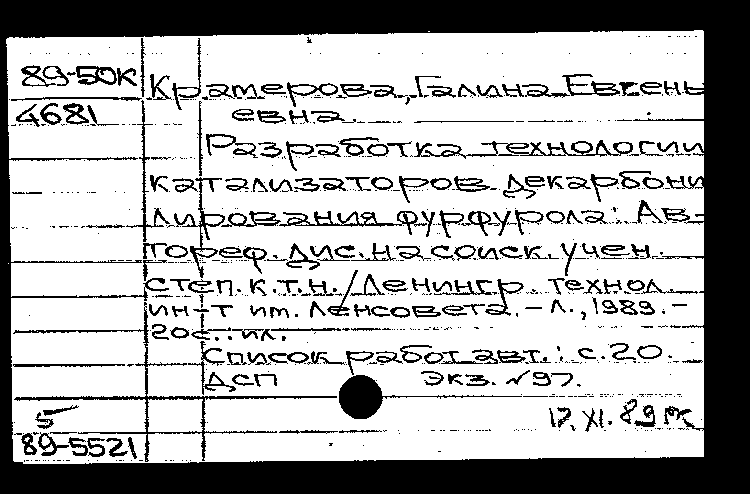 89-50К Крамерова, Галина Евгень
4681 евна.
Разработка технологии
катализаторов декарбони
лирования фурфурола: Ав-
тореф. дис. на соиск. учен.
степ. к.т.н. / Ленингр. технол.
ин-т им. Ленсовета. - Л., 1989. -
20с.: ил.
Список работ авт.: с.20.
ДСП Экз. №97.
5 17.XI.89
89-5521